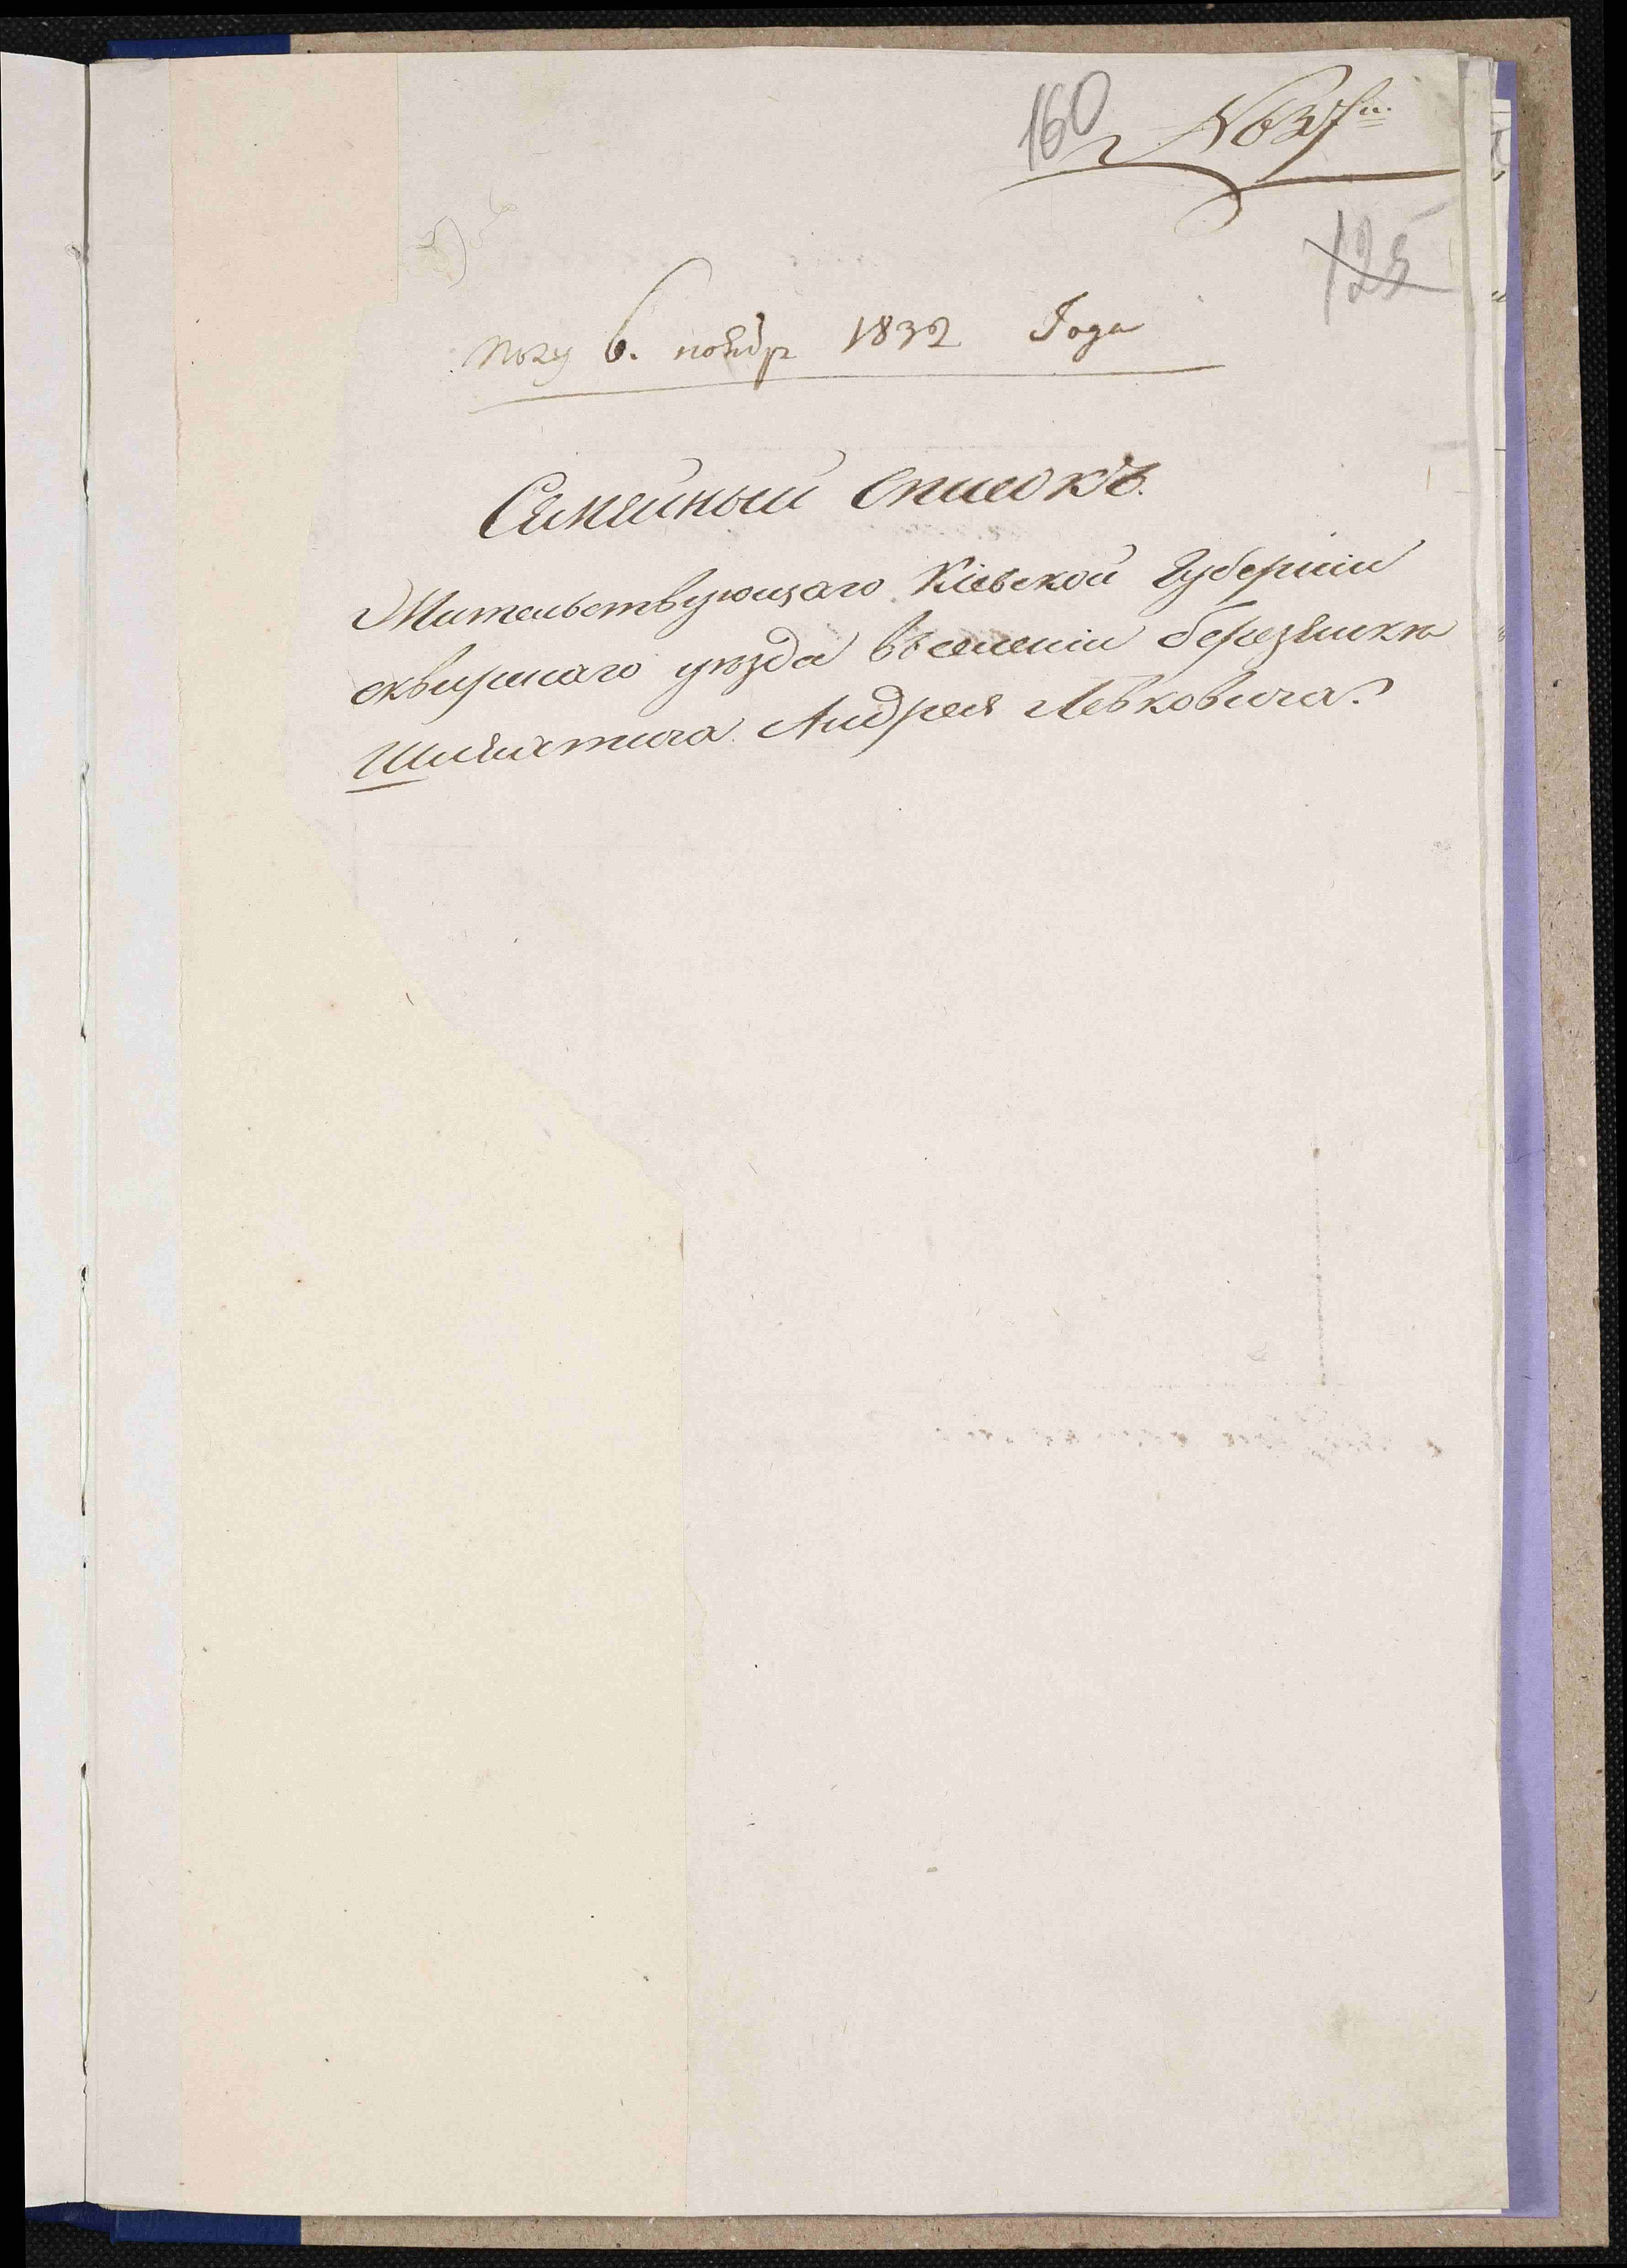 160
№ 637
125
Полу 6. ноябр 1832 Года
Семейный списокъ.
Жительствующаго Кіевской Губерніи
сквирскаго уѣзда въ селеніи березянки
Шляхтича Андрея Левковича.